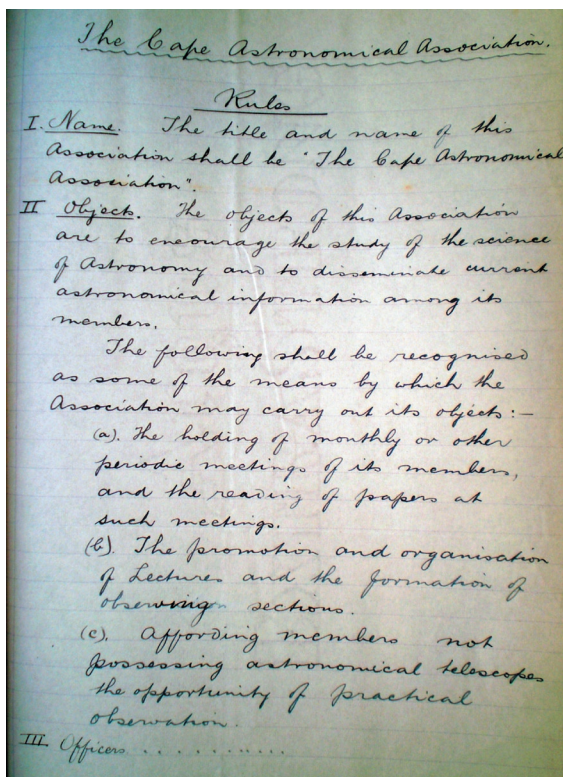 The Cape Astronomical Association.
Rules
I. Name. The title and name of this
Association shall be "The Cape Astronomical
Association".
II Objects. The objects of this Association
are to encourage the study of the science
of Astronomy and to disseminate current
astronomical information among its
members.
The following shall be recognised
as some of the means by which the
Association may carry out its objects:-
(a). The holding of monthly or other
periodic meetings of its members,
and the reading of papers at
such meetings.
(b). The promotion and organisation
of Lectures and the formation of
observing sections.
(c). Affording members not
possessing astronomical telescopes
the opportunity of practical
observation.
III. Officers . . . . . . . . . . .